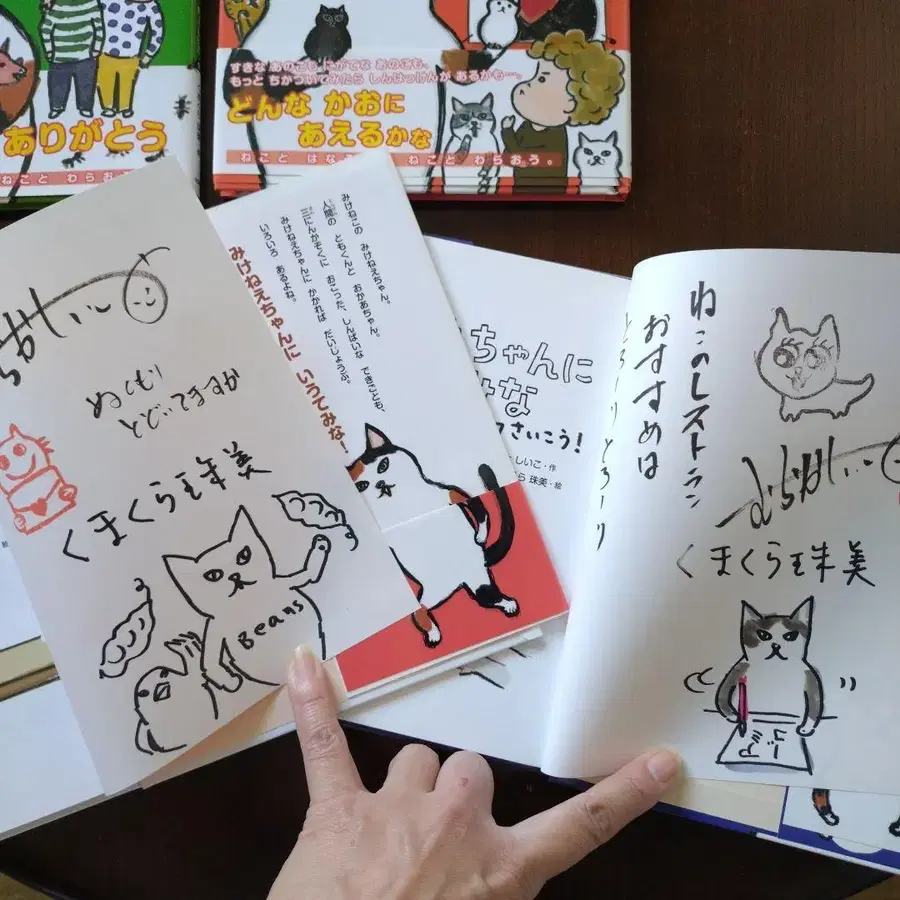 ありがとう
ねこと わらお
すきな あのこも にがてな あのさも、
もっと ちかづいてみたら しんはっけんが あるかも…。
どんな かおに
あえるかな
ねこと はな
ねこと わらおう。
ぬくもり
とどいてますか
くまくら珠美
Beans
みけねこの みけねえちゃん。
人間の ともくんと おかあちゃん。
三にんかぞくに おこった、しんぱいな できごとも、
みけねえちゃんに かかれば だいじょうぶ。
いろいろ あるよね。
みけねえちゃんに いうてみな!
ちゃんに
みな
さいこう!
しいこ・作
ら 珠美・絵
ねこのレストラン
おすすめは
とろーりとろーり
むらかみしいこ
くまくら珠美